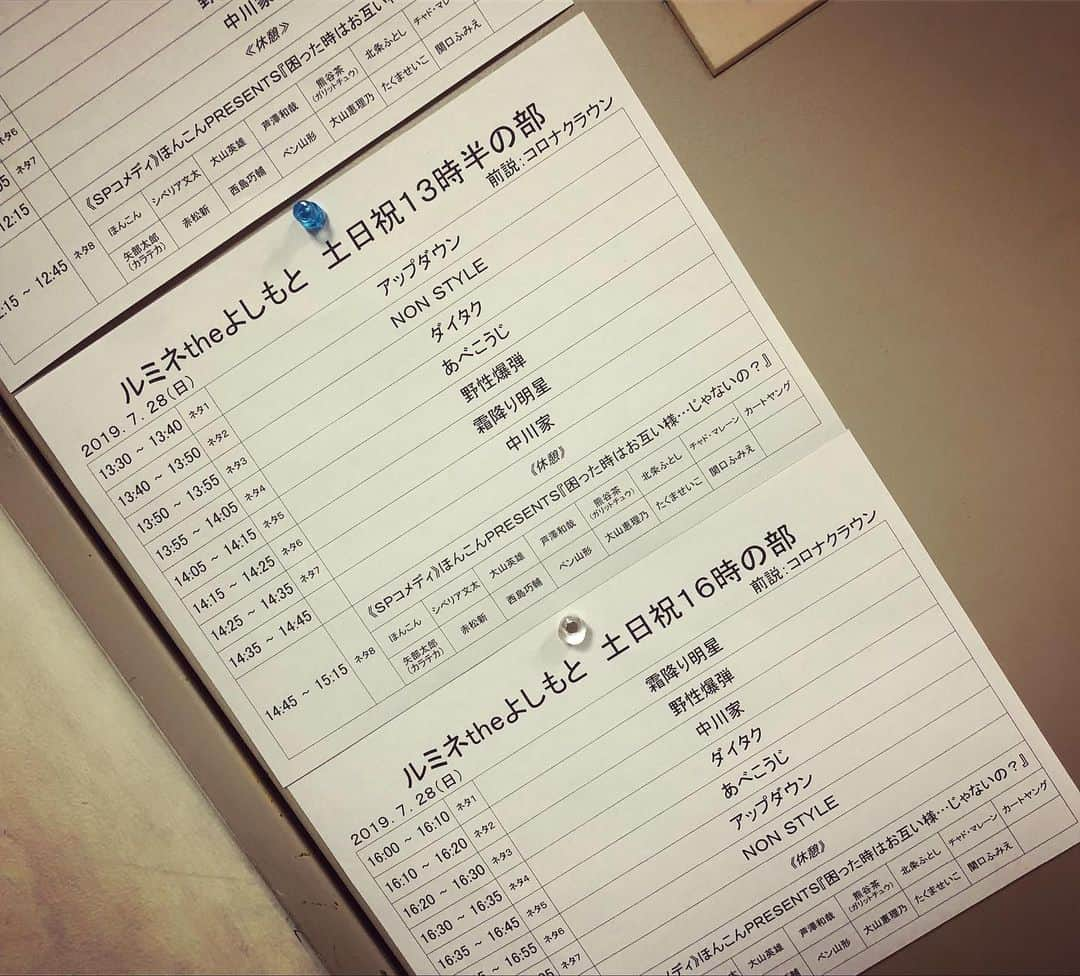 中川家
《休憩》
ネタ6
ネタ7
《SPコメディ》ほんこんPRESENTS『困った時はお互い
12:15
ほんこん シベリア文太 大山英雄 芦澤和哉 熊谷茶(ガリットチュウ) 北条ふとし チャド・マレーン
~ 12:45 ネタ8
矢部太郎(カラテカ) 赤松新 西島巧輔 ペン山形 大山恵理乃 たくませいこ 関口ふみえ
ルミネtheよしもと 土日祝13時半の部
2019.7.28(日)
前説:コロナクラウン
13:30 ~ 13:40 ネタ1 アップダウン
13:40 ~ 13:50 ネタ2 NON STYLE
13:50 ~ 13:55 ネタ3 ダイタク
13:55 ~ 14:05 ネタ4 あべこうじ
14:05 ~ 14:15 ネタ5 野性爆弾
14:15 ~ 14:25 ネタ6 霜降り明星
14:25 ~ 14:35 ネタ7 中川家
14:35 ~ 14:45 《休憩》
14:45 ~ 15:15 ネタ8 《SPコメディ》ほんこんPRESENTS『困った時はお互い様…じゃないの?』
ほんこん シベリア文太 大山英雄 芦澤和哉 熊谷茶(ガリットチュウ) 北条ふとし チャド・マレーン カートヤング
矢部太郎(カラテカ) 赤松新 西島巧輔 ペン山形 大山恵理乃 たくませいこ 関口ふみえ
ルミネtheよしもと 土日祝16時の部
2019.7.28(日)
前説:コロナクラウン
16:00 ~ 16:10 ネタ1 霜降り明星
16:10 ~ 16:20 ネタ2 野性爆弾
16:20 ~ 16:30 ネタ3 中川家
16:30 ~ 16:35 ネタ4 ダイタク
16:35 ~ 16:45 ネタ5 あべこうじ
~ 16:55 ネタ6 アップダウン
ネタ7 NON STYLE
《休憩》
《SPコメディ》ほんこんPRESENTS『困った時はお互い様…じゃないの?』
大山英雄 芦澤和哉 熊谷茶(ガリットチュウ) 北条ふとし チャド・マレーン カートヤング
ペン山形 大山恵理乃 たくませいこ 関口ふみえ